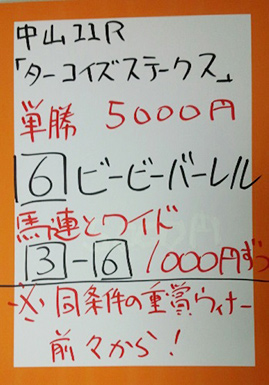 中山11R
「ターコイズステークス」
単勝 5000円
6 ビービーバーレル
馬連とワイド
3-6 1000円ずつ
※同条件の重賞ウィナー
前々から!